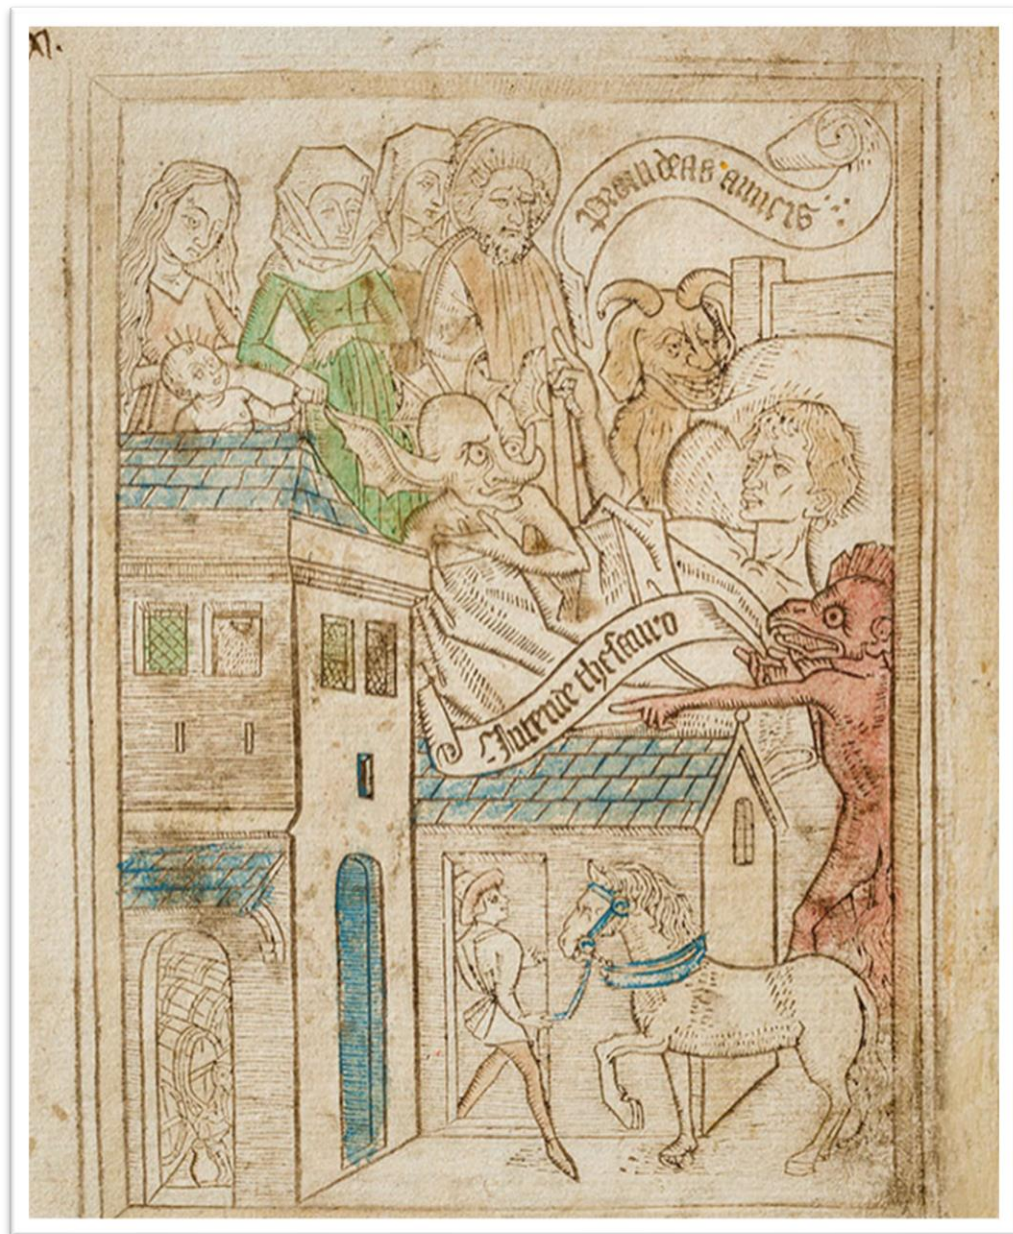 Prouideas amicis
Intende theſauro